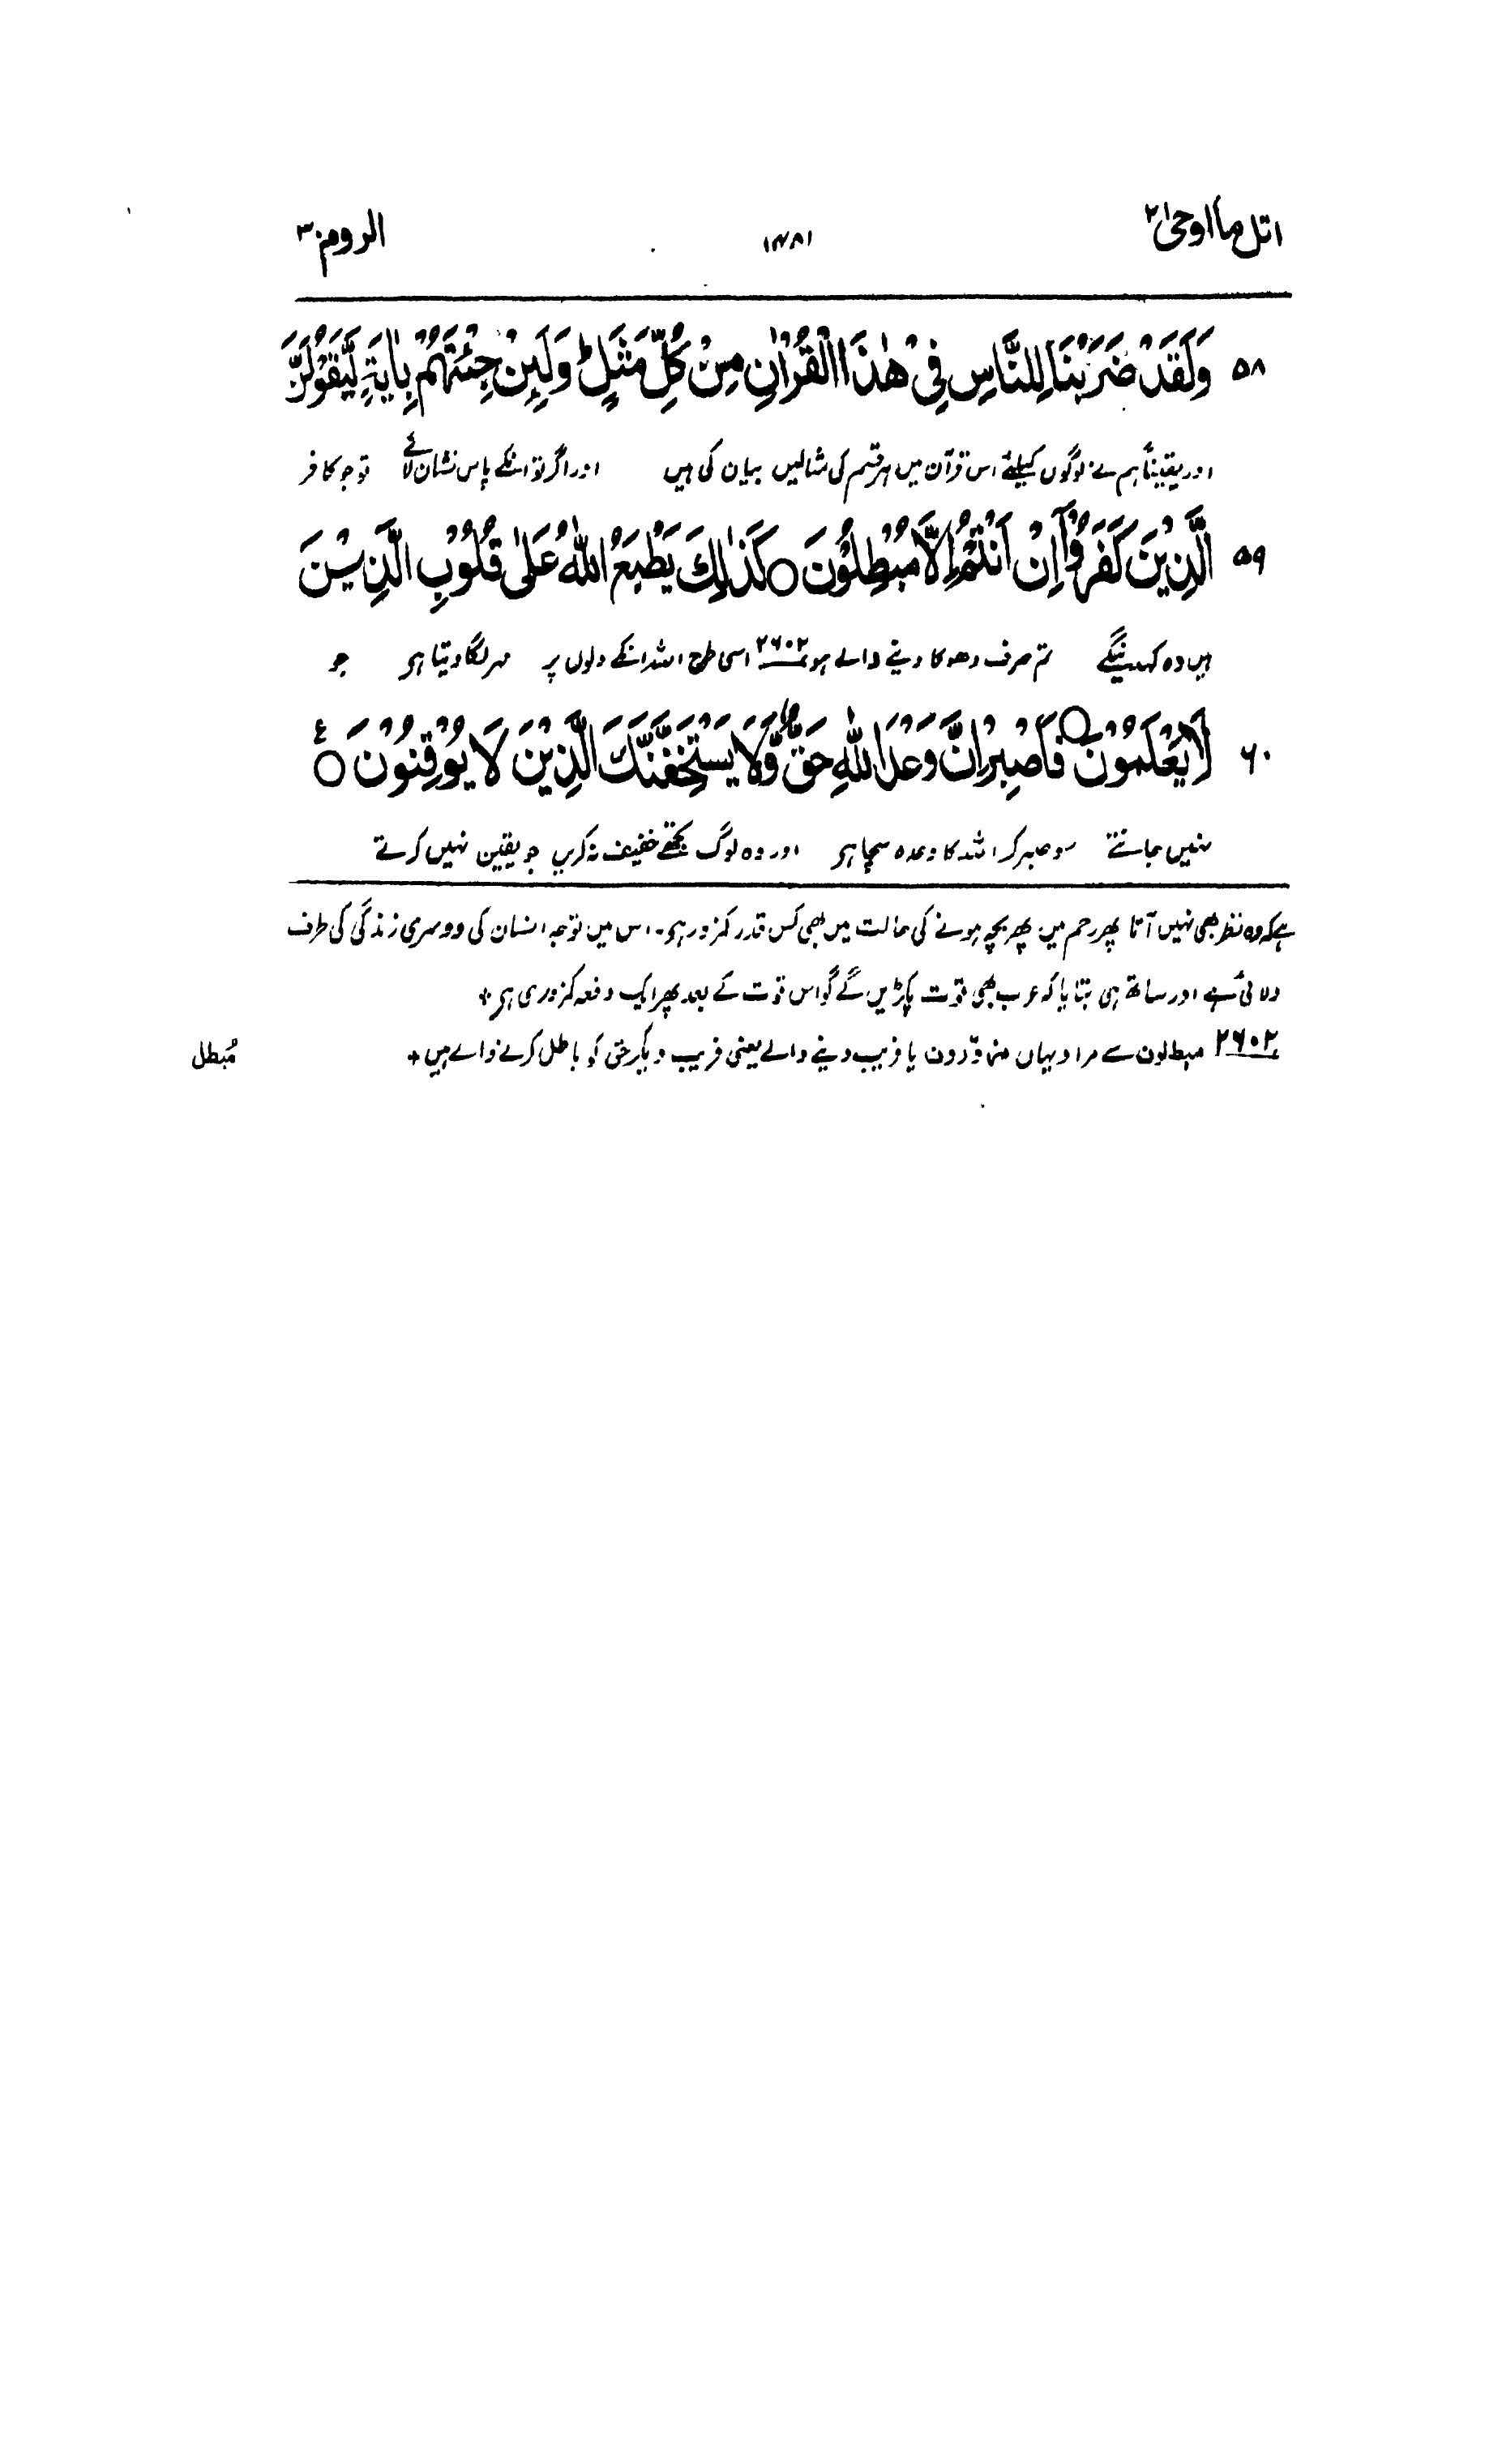 اتل ما اوحی ۲۱
۱۴۸۱
الروم ۳۰
۵۸ وَلَقَدْ ضَرَبْنَا لِلنَّاسِ فِیْ هٰذَا الْقُرْاٰنِ مِنْ كُلِّ مَثَلٍ ؕ وَلَئِنْ جِئْتَهُمْ بِاٰیَةٍ لَّیَقُوْلَنَّ
اور یقیناً ہم نے لوگوں کیلئے اس قرآن میں ہر قسم کی مثالیں بیان کی ہیں اور اگر تو انکے پاس نشان لائے تو جو کافر
۵۹ الَّذِیْنَ كَفَرُوْۤا اِنْ اَنْتُمْ اِلَّا مُبْطِلُوْنَ ○ كَذٰلِكَ یَطْبَعُ اللّٰهُ عَلٰی قُلُوْبِ الَّذِیْنَ
ہیں وہ کہینگے تم صرف دھوکا دینے والے ہو ۲۶۰۲ اسی طرح اللہ انکے دلوں پر مہر لگا دیتا ہی جو
۶۰ لَا یَعْلَمُوْنَ ○ فَاصْبِرْ اِنَّ وَعْدَ اللّٰهِ حَقٌّ وَّلَا یَسْتَخِفَّنَّكَ الَّذِیْنَ لَا یُوْقِنُوْنَ ○ ع
نہیں جانتے سو صبر کر اللہ کا وعدہ سچا ہی اور وہ لوگ تجھے خفیف نہ کریں جو یقین نہیں کرتے
ہے کہ وہ نظر بھی نہیں آتا پھر رحم میں پھر بچہ ہونے کی حالت میں بھی کس قدر کمزور ہی۔ اس میں توجہ انسان کی دوسری زندگی کی طرف
دلائی ہے اور ساتھ ہی بتایا کہ عرب بھی قوت پکڑیں گے گو اس قوت کے بعد پھر ایک دفعہ کمزوری ہی +
۲۶۰۲ مبطلون سے مراد یہاں مزوّرون یا فریب دینے والے یعنی فریب دیکر حق کو باطل کرنے والے ہیں +
مُبطل